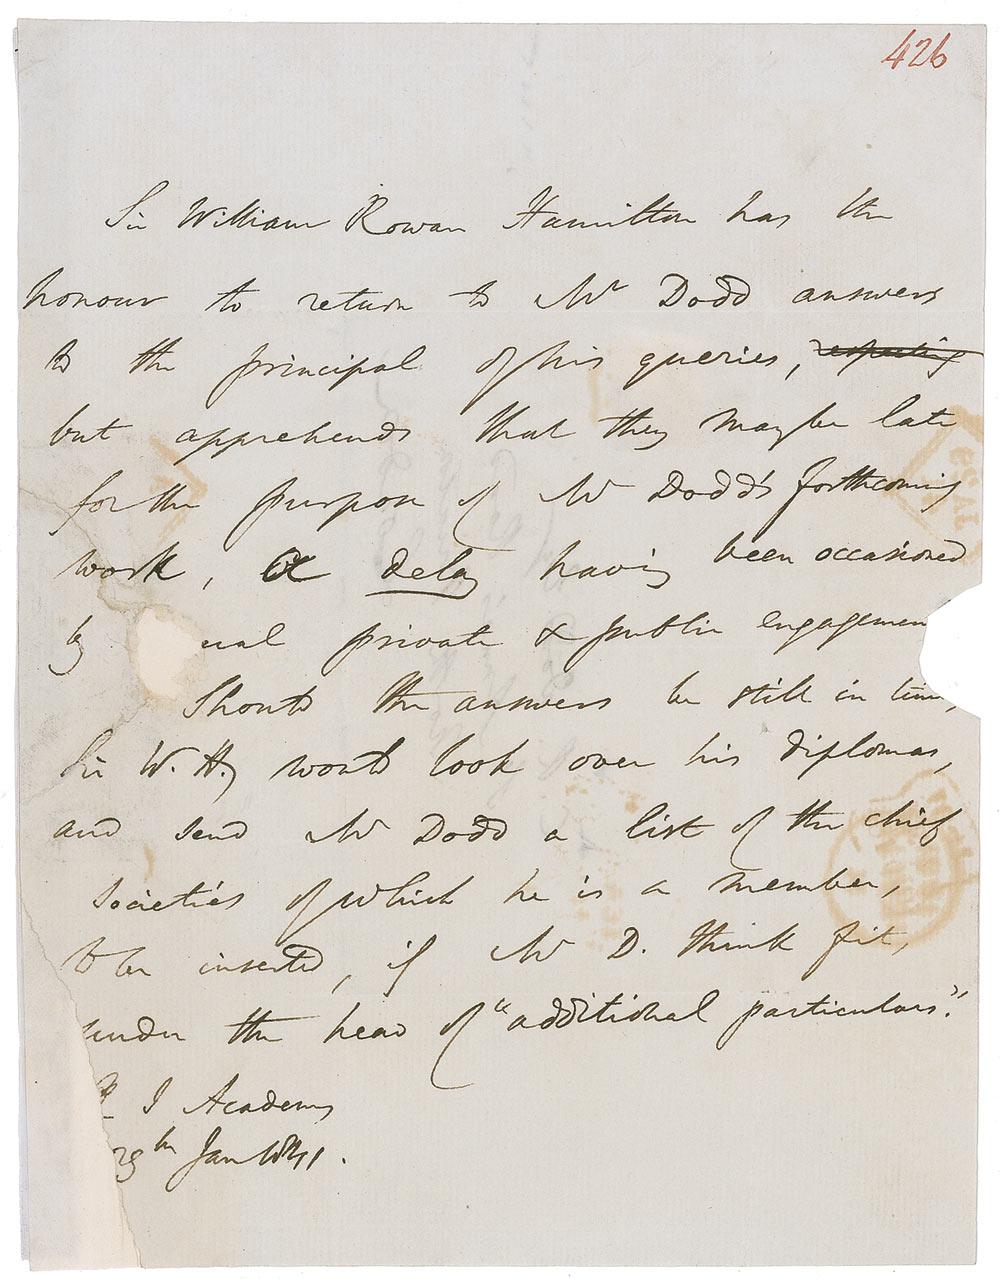 426
Sir William Rowan Hamilton has the
honour to return to Mr Dodd answers
to the principal of his queries, respecting
but apprehends that they may be late
for the purpose of Mr Dodd's forthcoming
work, a delay having been occasioned
by ual private & public engagemen
Should the answers be still in time,
Sir W. H. would look over his diplomas,
and send Mr Dodd a list of the chief
societies of which he is a member,
to be inserted, if Mr D. think fit,
under the head of "additional particulars".
R I Academy
29th Jan 1841.